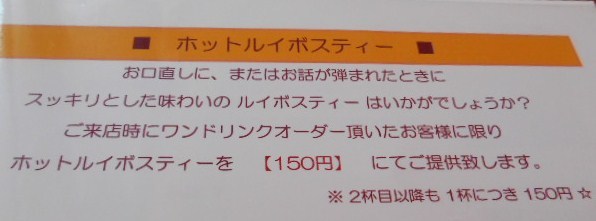 ■ ホットルイボスティー ■
お口直しに、またはお話が弾まれたときに
スッキリとした味わいの ルイボスティー はいかがでしょうか?
ご来店時にワンドリンクオーダー頂いたお客様に限り
ホットルイボスティーを 【150円】 にてご提供致します。
※ 2杯目以降も 1杯につき 150円 ☆